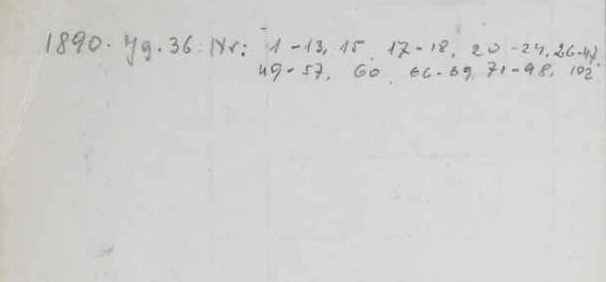 1890. Jg. 36. Nr: 1-13, 15, 17-18, 20-24, 26-47,
49-57, 60, 66-69, 71-98, 102.